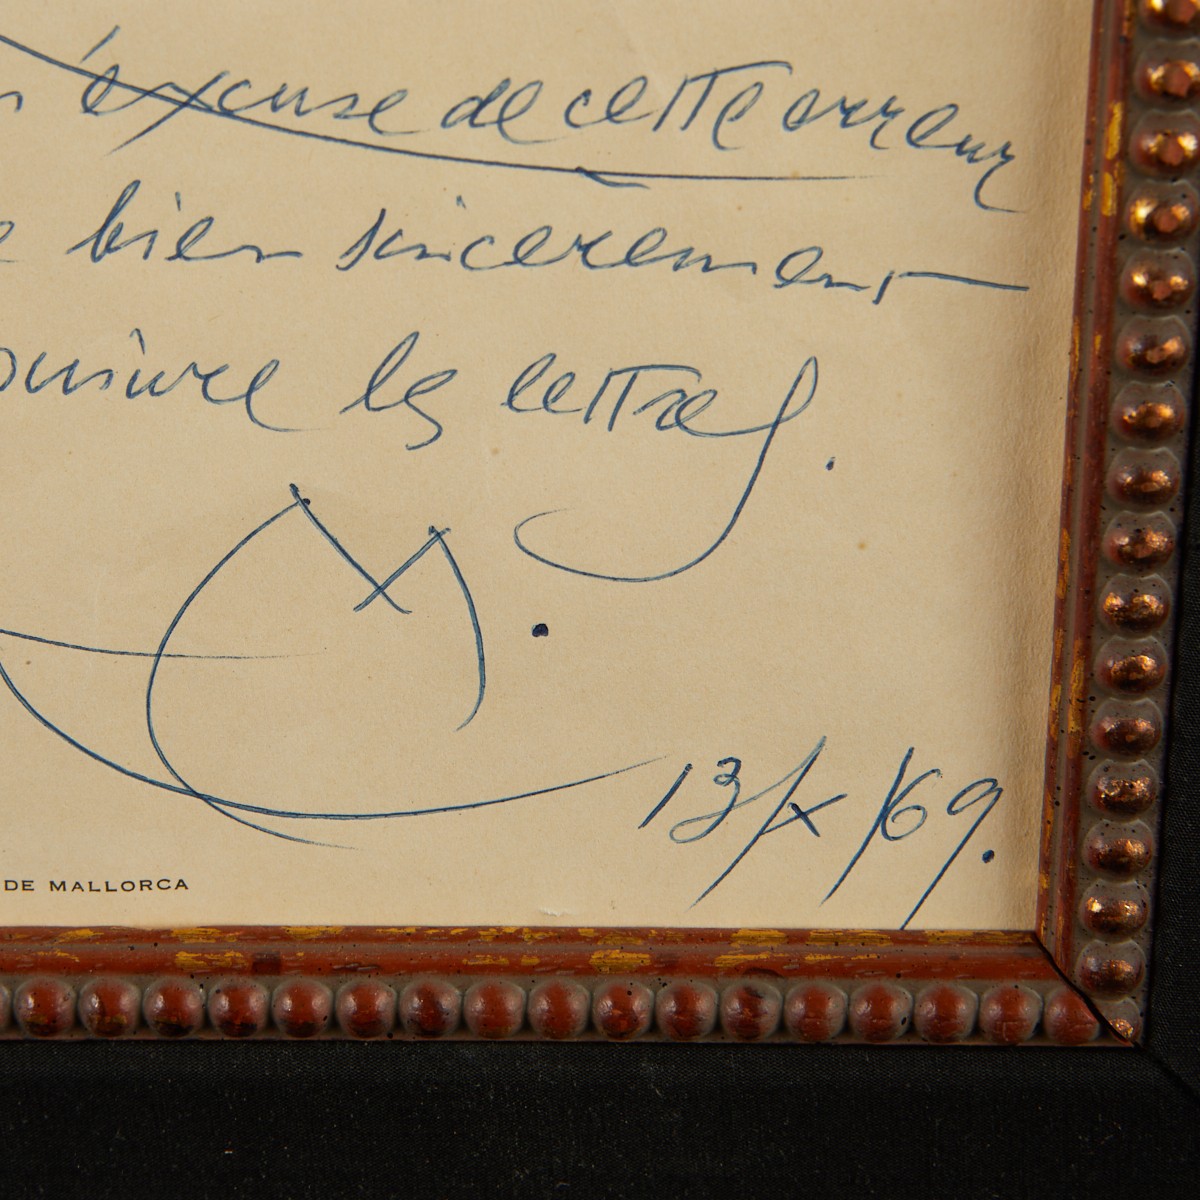 m'éxcuse de cette erreur
bien sincerement
suivre les lettres.
M.
13/X/69.
DE MALLORCA